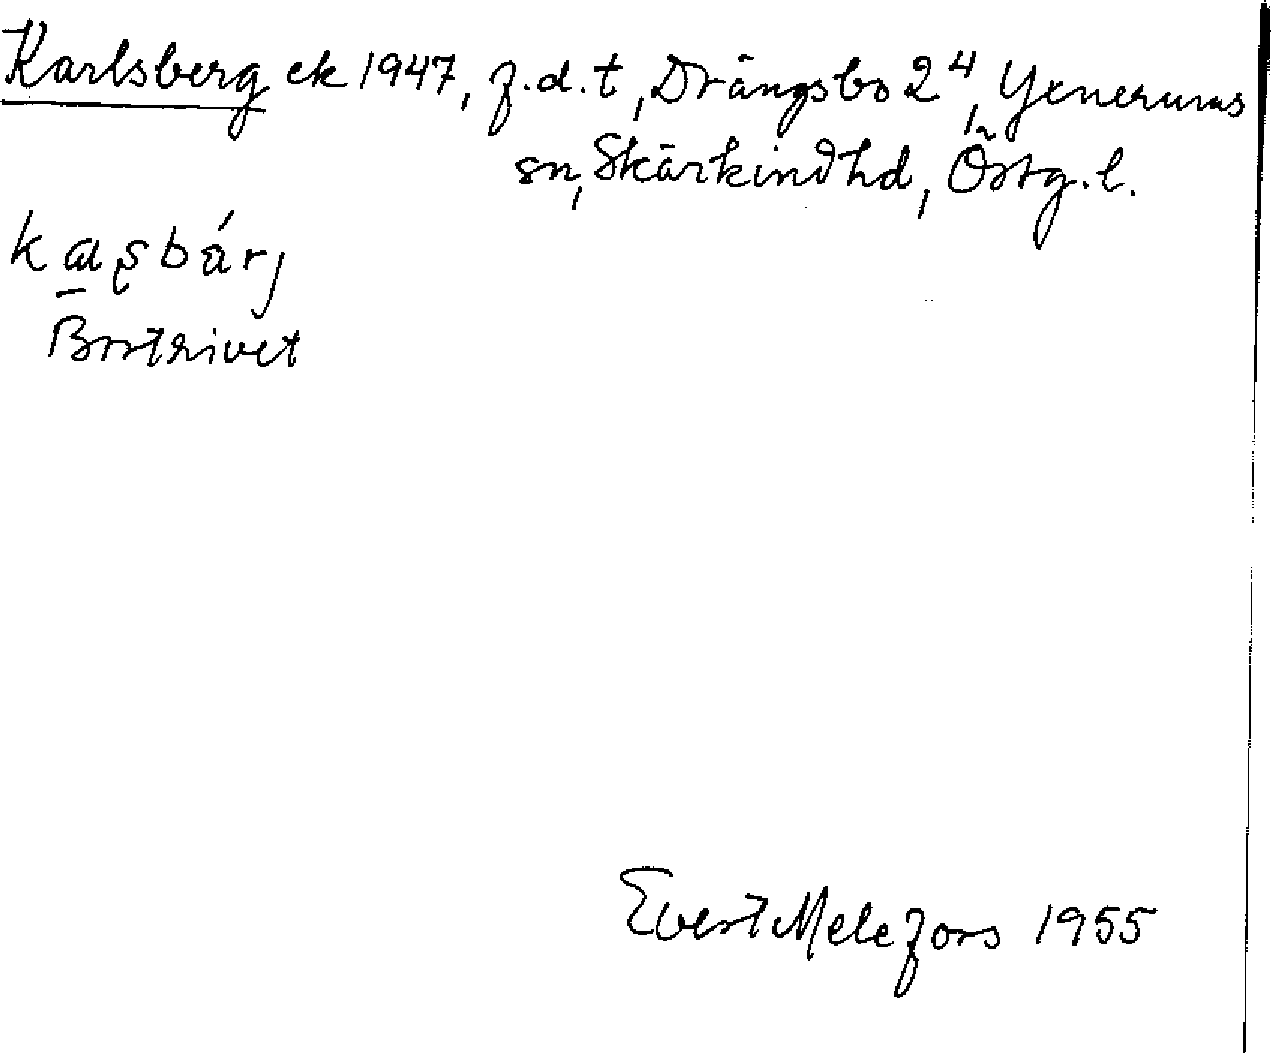 Karlsberg ek 1947, f.d.t, Drängsbo 2⁴, Yxnerums
sn, Skärkind hd, Östg.l.
kɑʂbárj
Bortrivet
Evert Melefors 1955